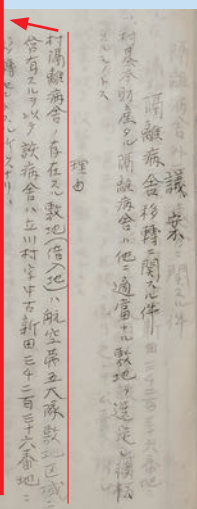 議案
隔離病舎移轉ニ関スル件
村基本財産タル隔離病舎ハ他ニ適當ナル敷地ヲ選定シ移転
スルモノトス
理由
村隔離病舎ノ存在スル敷地(借入地)ハ航空第五大隊敷地区域ニ
含有スルヲ以テ該病舎ハ立川村字中古新田三千二百三十六番地ニ